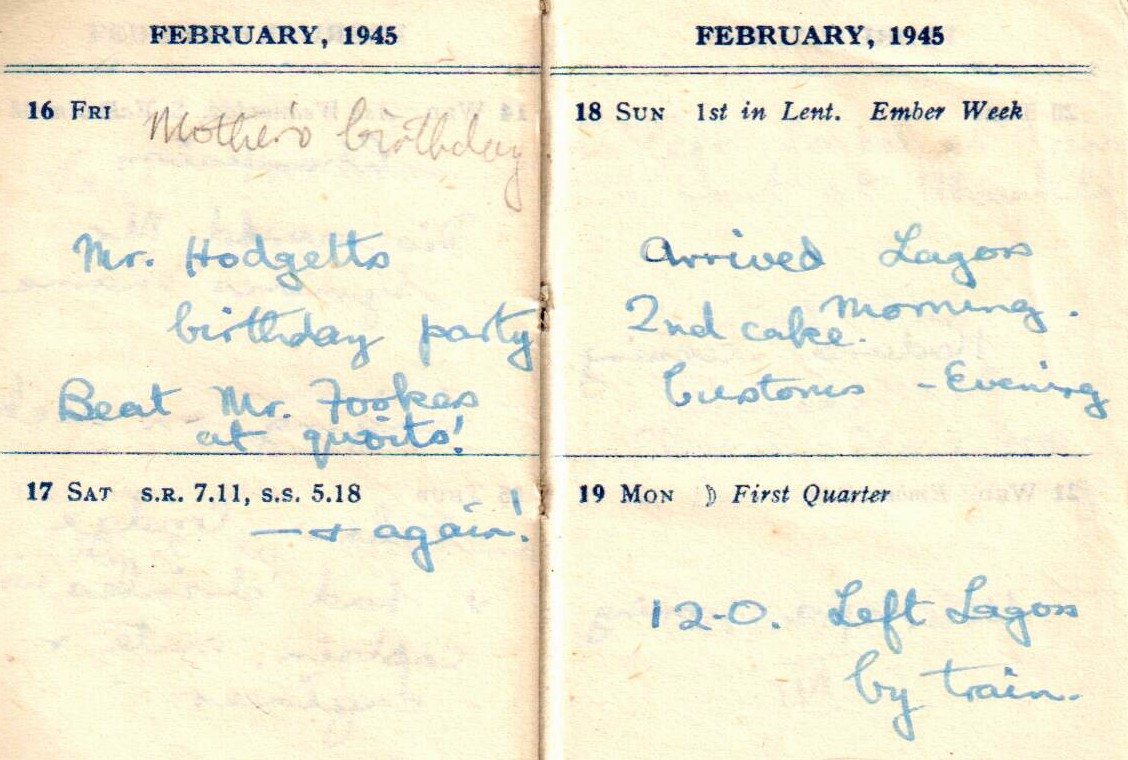 FEBRUARY, 1945
16 FRI
Mothers birthday
Mr. Hodgetts
birthday party
Beat Mr. Fookes
at quoits!
17 SAT S.R. 7.11, S.S. 5.18
— & again!
FEBRUARY, 1945
18 SUN 1st in Lent. Ember Week
Arrived Lagos
Morning.
2nd cake.
Customs - Evening
19 MON ☽ First Quarter
12-0. Left Lagos
by train.